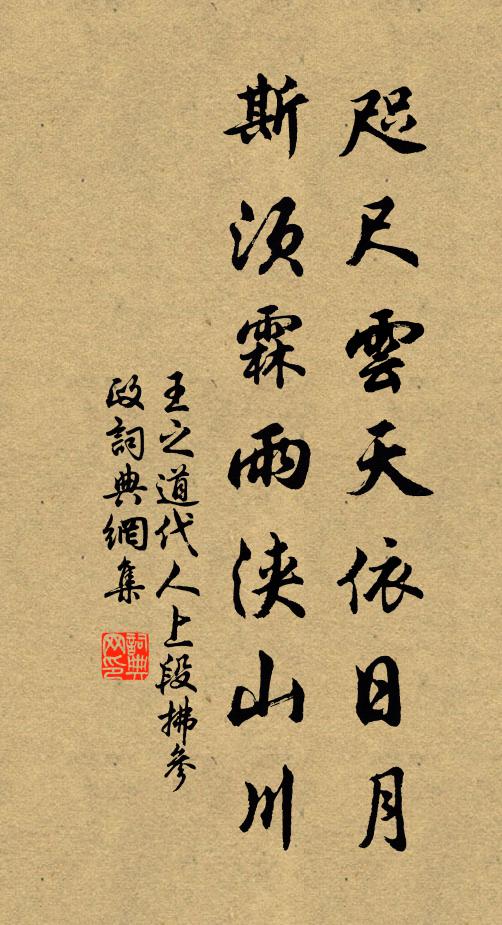 咫尺雲天依日月
斯須霖雨浹山川
王之道代人上段拂參
政詞典網集
詞典
网印